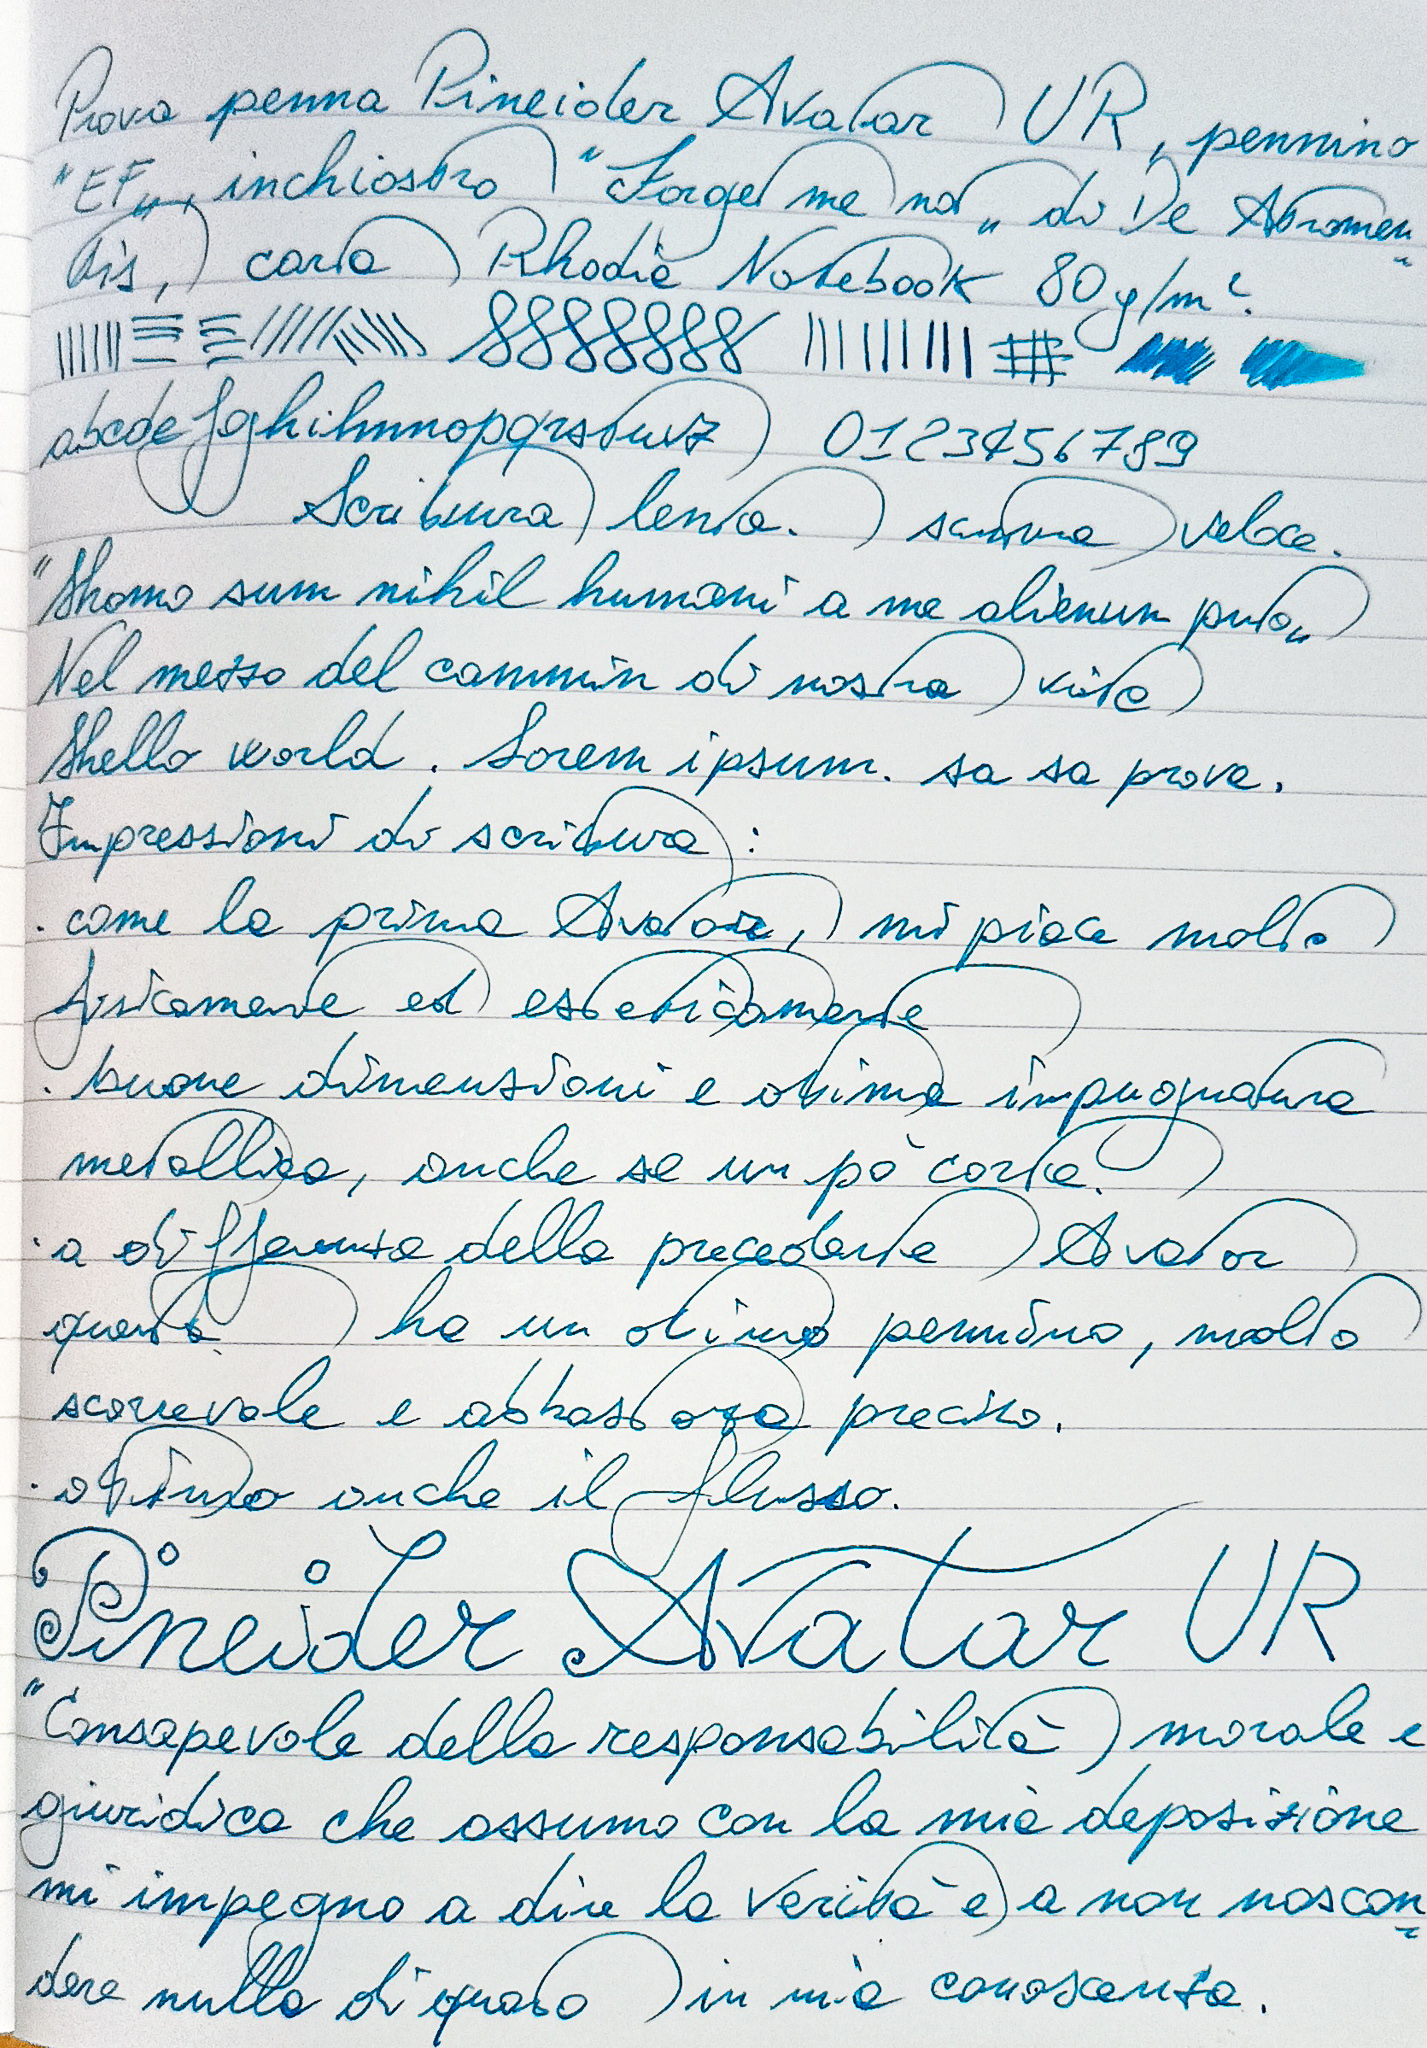 Prova penna Pineider Avatar UR, pennino
"EF„, inchiostro "Forget me not„ di De Atramen=
tis, carta Rhodia Notebook 80 g/m².
abcdefghilmnopqrstuvz 0123456789
Scrittura lenta. scrittura veloce.
"Homo sum nihil humani a me alienum puto„
Nel mezzo del cammin di nostra vita
Hello world. Lorem ipsum. sa sa prova.
Impressioni di scrittura:
. come la prima Avatar, mi piace molto
fisicamente ed esteticamente
. buone dimensioni e ottima impugnatura
metallica, anche se un pò corta.
. a differenza della precedente Avatar
questa ha un ottimo pennino, molto
scorrevole e abbastanza preciso.
. ottimo anche il flusso.
Pineider Avatar UR
"Consapevole della responsabilità morale e
giuridica che assumo con la mia deposizione
mi impegno a dire la verità e a non nascon=
dere nulla di quanto in mia conoscenza.